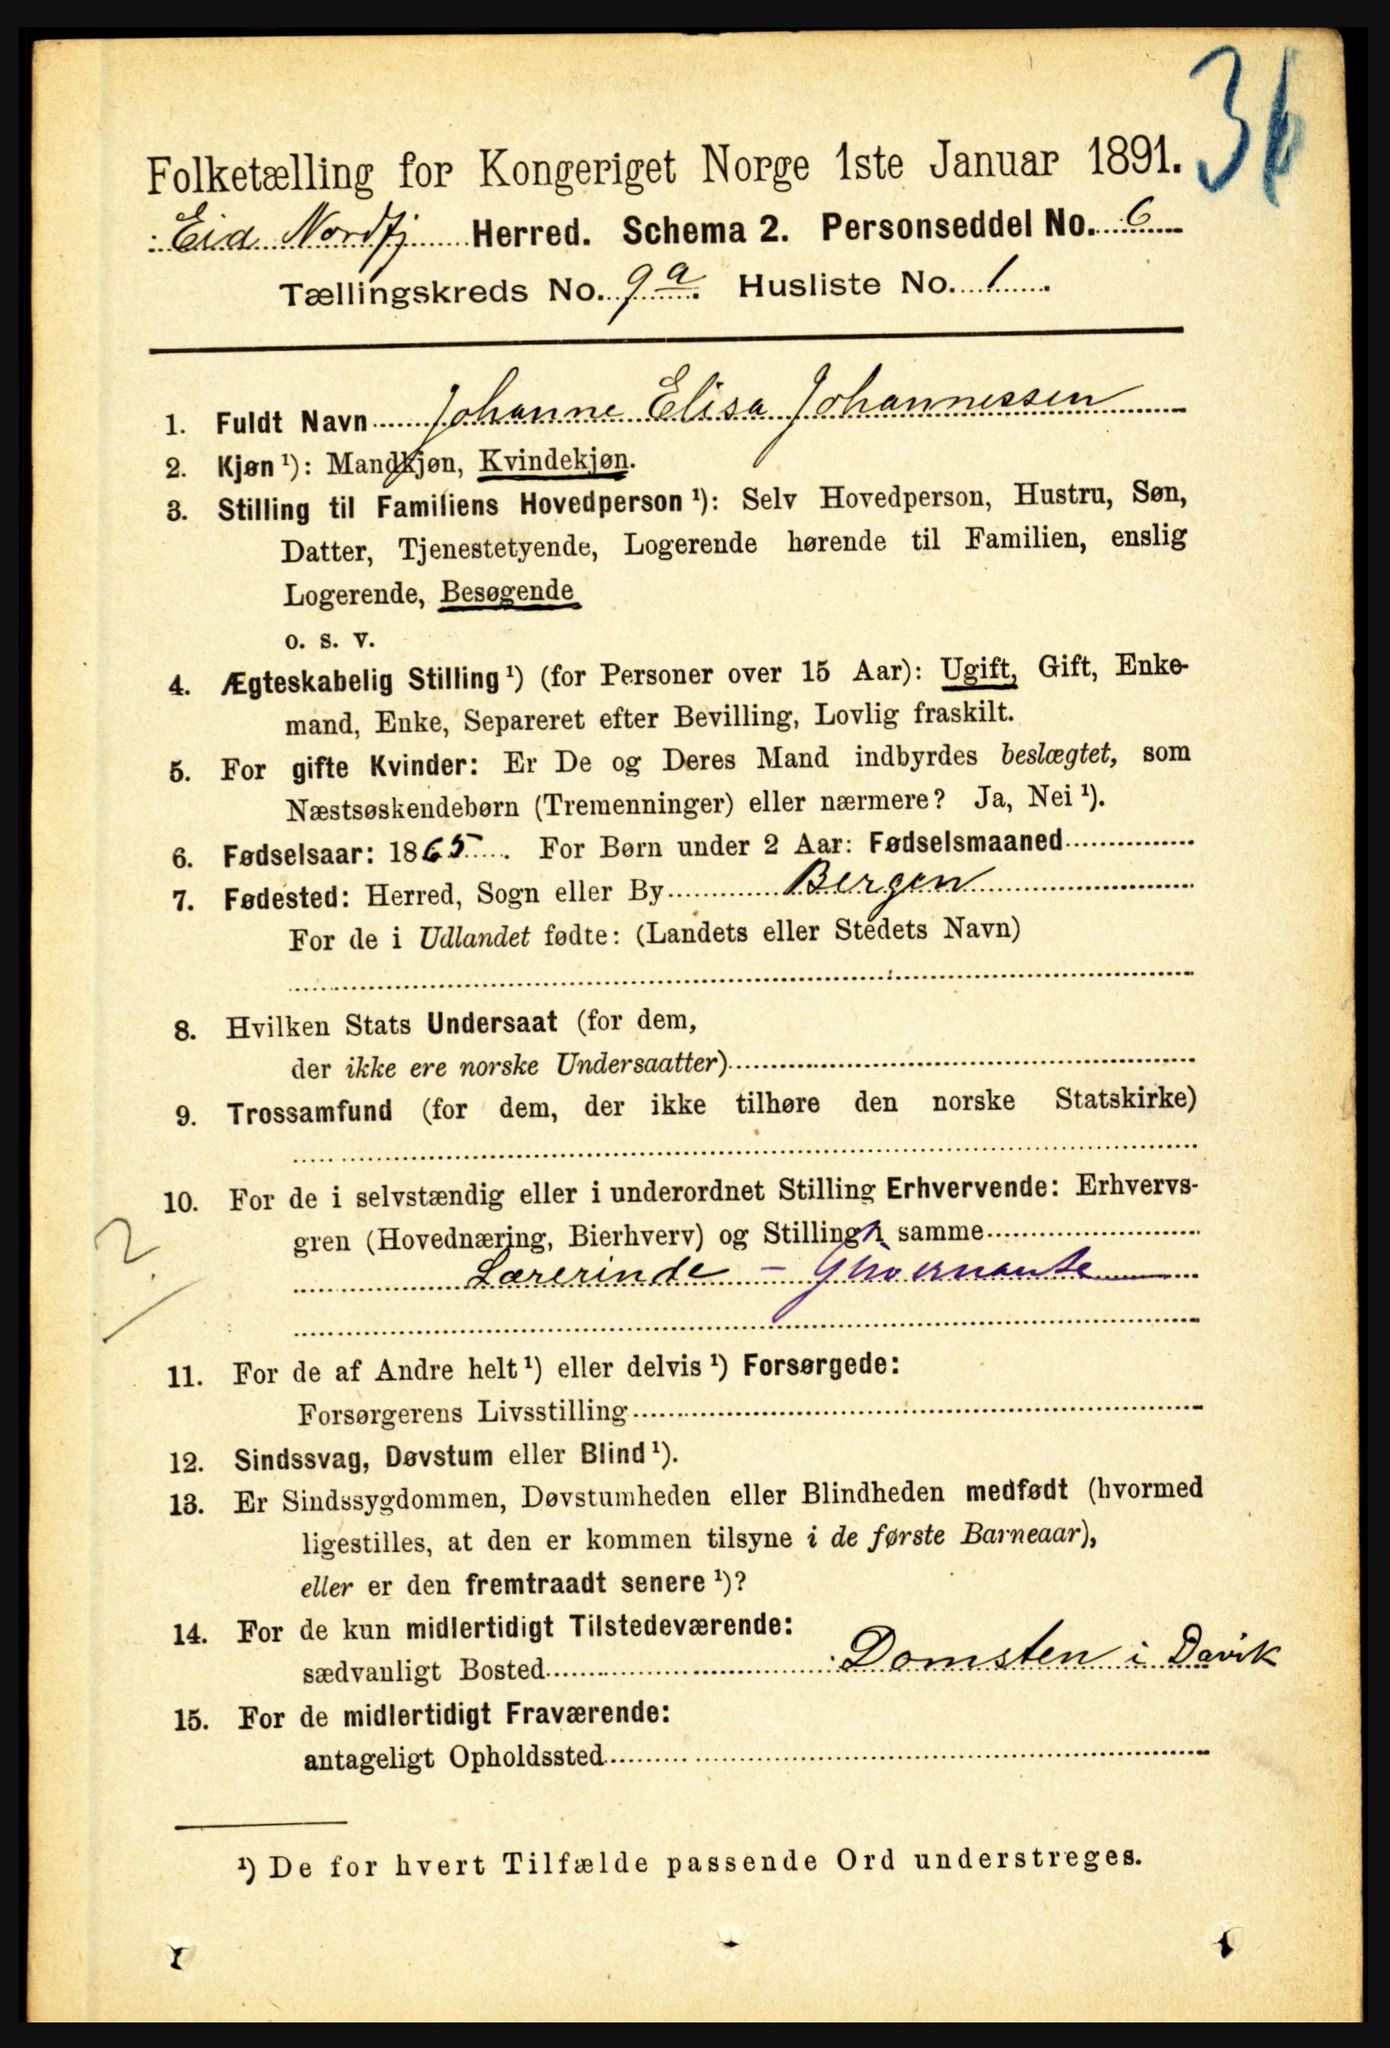 36
Folketælling for Kongeriget Norge 1ste Januar 1891.
Eid Nordfj Herred. Schema 2. Personseddel No. 6
Tællingskreds No. 9a. Husliste No. 1.
1. Fuldt Navn Johanne Elisa Johannessen
2. Kjøn ¹): Mandkjøn, Kvindekjøn.
3. Stilling til Familiens Hovedperson ¹): Selv Hovedperson, Hustru, Søn,
Datter, Tjenestetyende, Logerende hørende til Familien, enslig
Logerende, Besøgende
o. s. v.
4. Ægteskabelig Stilling ¹) (for Personer over 15 Aar): Ugift, Gift, Enke-
mand, Enke, Separeret efter Bevilling, Lovlig fraskilt.
5. For gifte Kvinder: Er De og Deres Mand indbyrdes beslægtet, som
Næstsøskendebørn (Tremenninger) eller nærmere? Ja, Nei ¹).
6. Fødselsaar: 1865. For Børn under 2 Aar: Fødselsmaaned
7. Fødested: Herred, Sogn eller By Bergen
For de i Udlandet fødte: (Landets eller Stedets Navn)
8. Hvilken Stats Undersaat (for dem,
der ikke ere norske Undersaatter)
9. Trossamfund (for dem, der ikke tilhøre den norske Statskirke)
10. For de i selvstændig eller i underordnet Stilling Erhvervende: Erhvervs-
gren (Hovednæring, Bierhverv) og Stilling i samme
Lærerinde –
2
11. For de af Andre helt ¹) eller delvis ¹) Forsørgede:
Forsørgerens Livsstilling
12. Sindssvag, Døvstum eller Blind ¹).
13. Er Sindssygdommen, Døvstumheden eller Blindheden medfødt (hvormed
ligestilles, at den er kommen tilsyne i de første Barneaar),
eller er den fremtraadt senere ¹)?
14. For de kun midlertidigt Tilstedeværende:
sædvanligt Bosted Domsten i Davik
15. For de midlertidigt Fraværende:
antageligt Opholdssted
¹) De for hvert Tilfælde passende Ord understreges.